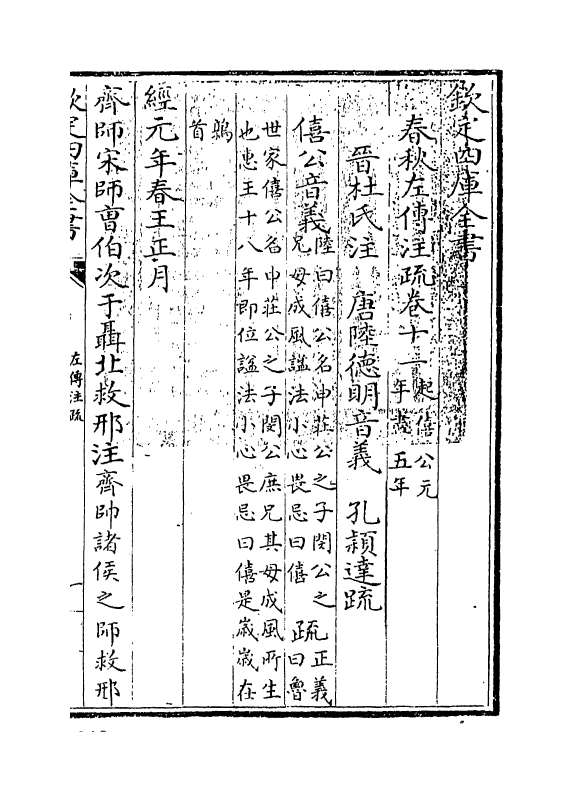 欽定四庫全書
春秋左傳注疏卷十一 起僖公元年盡五年
晉杜氏注 唐陸德明音義 孔穎達疏
僖公音義陸曰僖公名申莊公之子閔公之兄母成風諡法小心畏忌曰僖 疏正義曰魯
世家僖公名申莊公之子閔公庶兄其母成風所生也惠王十八年即位諡法小心畏忌曰僖是歲歲在
鶉首
經元年春王正月
齊師宋師曹伯次于聶北救邢注齊帥諸侯之師救邢
欽定四庫全書
左傳注疏
一